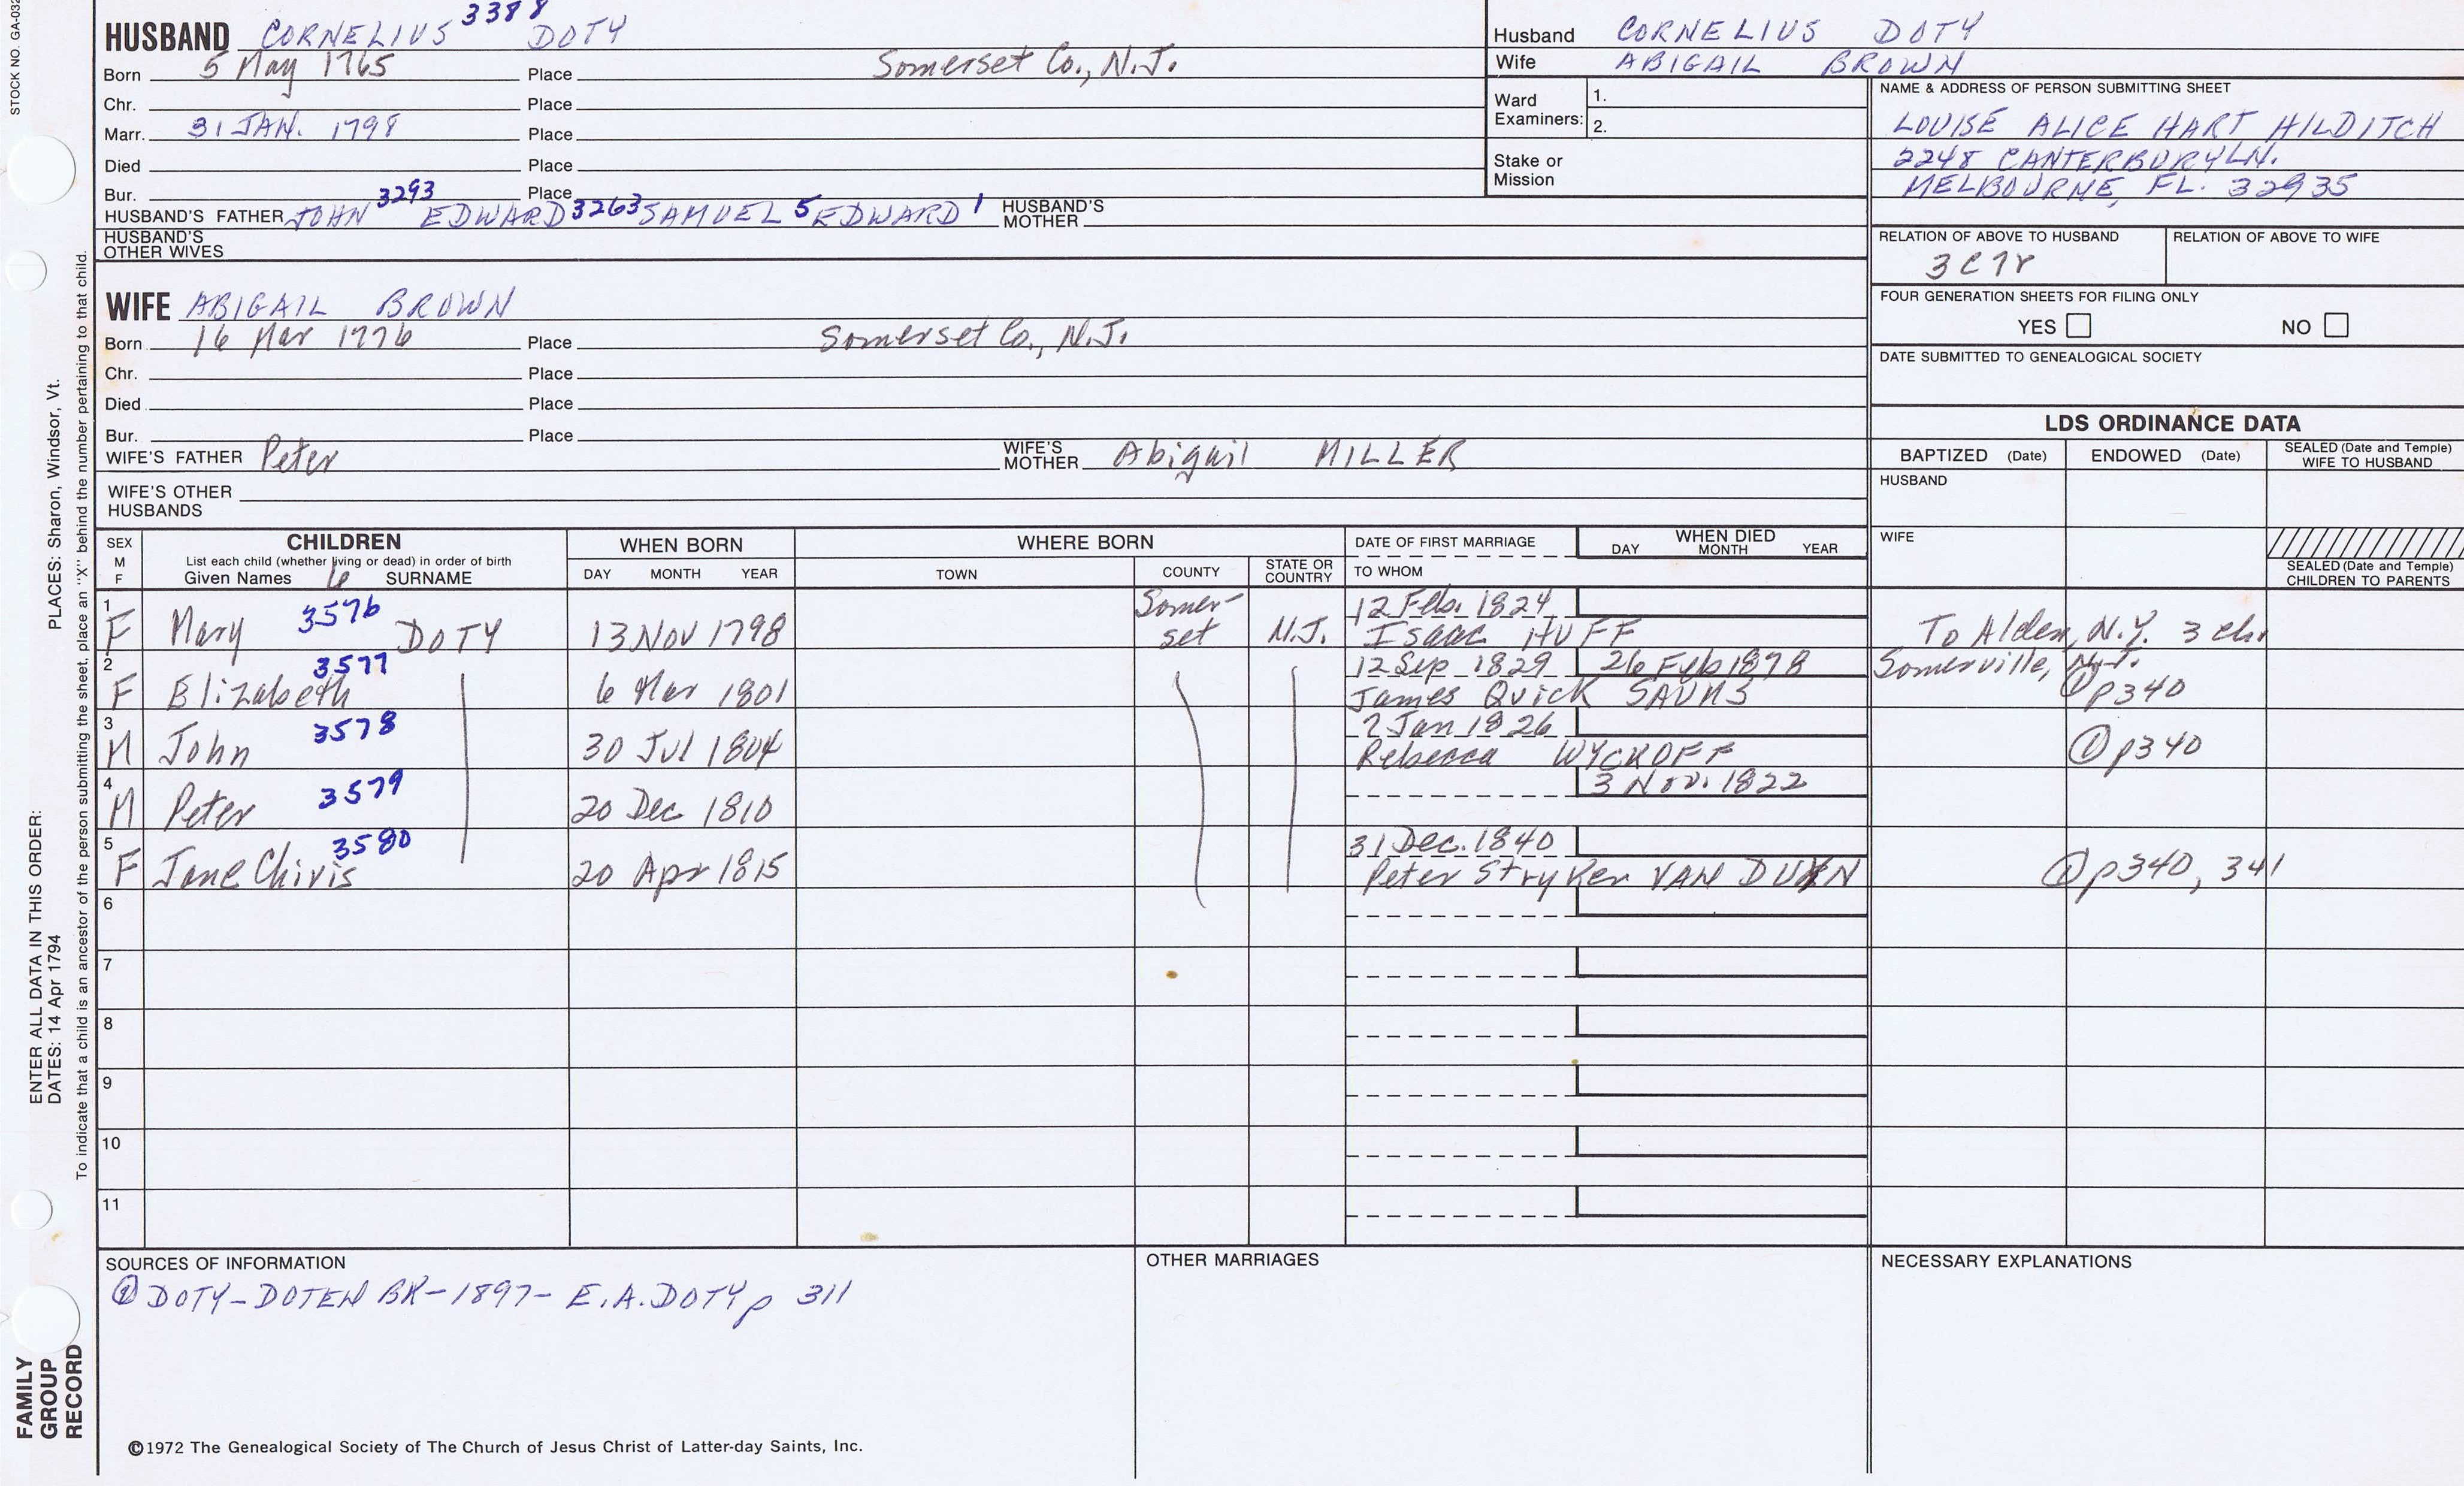 STOCK NO. GA-032
3388
HUSBAND CORNELIUS DOTY
Born 5 May 1765 Place Somerset Co., N.J.
Chr. Place
Marr. 31 JAN. 1798 Place
Died Place
Bur. Place
3293 3263 5 1
HUSBAND'S FATHER JOHN EDWARD SAMUEL EDWARD HUSBAND'S MOTHER
HUSBAND'S OTHER WIVES
Husband CORNELIUS DOTY
Wife ABIGAIL BROWN
Ward Examiners: 1.
2.
Stake or Mission
NAME & ADDRESS OF PERSON SUBMITTING SHEET
LOUISE ALICE HART HILDITCH
2248 CANTERBURY LN.
MELBOURNE, FL. 32935
RELATION OF ABOVE TO HUSBAND RELATION OF ABOVE TO WIFE
3C7r
FOUR GENERATION SHEETS FOR FILING ONLY
YES NO
DATE SUBMITTED TO GENEALOGICAL SOCIETY
WIFE ABIGAIL BROWN
Born 16 Mar 1776 Place Somerset Co., N.J.
Chr. Place
Died Place
Bur. Place
WIFE'S FATHER Peter WIFE'S MOTHER Abigail MILLER
WIFE'S OTHER HUSBANDS
LDS ORDINANCE DATA
BAPTIZED (Date) ENDOWED (Date) SEALED (Date and Temple) WIFE TO HUSBAND
HUSBAND
WIFE
SEALED (Date and Temple) CHILDREN TO PARENTS
SEX M F
CHILDREN
List each child (whether living or dead) in order of birth
Given Names SURNAME
WHEN BORN
DAY MONTH YEAR
WHERE BORN
TOWN COUNTY STATE OR COUNTRY
DATE OF FIRST MARRIAGE
TO WHOM
WHEN DIED
DAY MONTH YEAR
1 F Mary 3576 DOTY 13 Nov 1798 Somer-set N.J. 12 Feb. 1824 Isaac HUFF To Alden, N.Y. 3 chr
2 F Elizabeth 3577 6 Mar 1801 12 Sep 1829 26 Feb 1878 James Quick SAUMS Somerville, N.J. ① p340
3 M John 3578 30 Jul 1804 7 Jan 1826 Rebecca WYCKOFF ① p340
4 M Peter 3579 20 Dec 1810 3 Nov. 1822
5 F Jane Chivis 3580 20 Apr 1815 31 Dec. 1840 Peter Stryker VAN DUYN ① p340, 341
6
7
8
9
10
11
SOURCES OF INFORMATION
① DOTY-DOTEN BK-1897- E.A. DOTY p 311
OTHER MARRIAGES
NECESSARY EXPLANATIONS
©1972 The Genealogical Society of The Church of Jesus Christ of Latter-day Saints, Inc.
FAMILY GROUP RECORD
ENTER ALL DATA IN THIS ORDER:
DATES: 14 Apr 1794 PLACES: Sharon, Windsor, Vt.
To indicate that a child is an ancestor of the person submitting the sheet, place an "X" behind the number pertaining to that child.